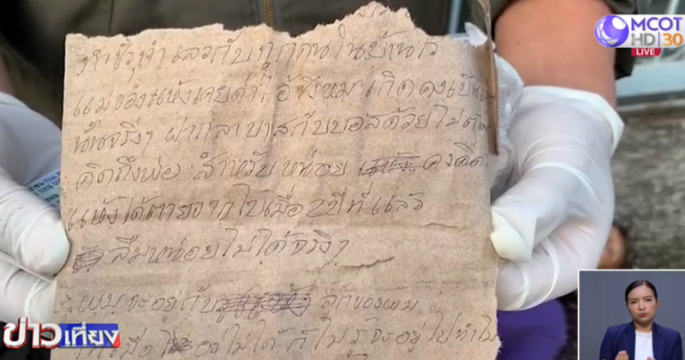 MCOT
HD 30
LIVE
ทำชั่วทำเลวกับทุกคนในบ้าน
แม่ของแห้งเคยด่าไอ้ชิงหมาเกิดคงเป็น
นั้นจริงๆ ฝากลาบาสกับบอสด้วยไม่ต้อง
คิดถึงพ่อ สำหรับหน่อย คงคิด
แห้งได้ตายจากไปเมื่อ 2 ปีที่แล้ว
ลืมหน่อยไม่ได้จริงๆ
ผมจะอยู่กับ ลูกของผม
ไม่ได้ก็ไม่รู้จะอยู่ไปทำไม
ข่าวเที่ยง